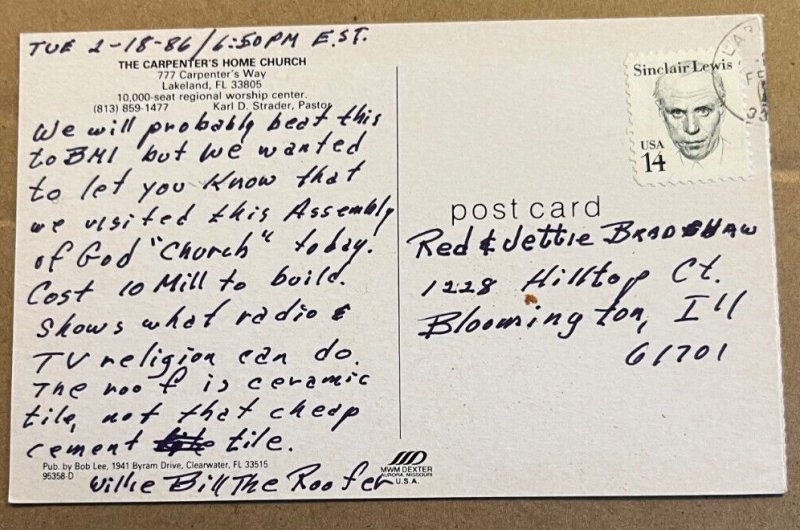 TUE 2-18-86/6:50PM E.ST.
THE CARPENTER'S HOME CHURCH
777 Carpenter's Way
Lakeland, FL 33805
10,000-seat regional worship center.
(813) 859-1477 Karl D. Strader, Pastor
We will probably beat this
to BMI but we wanted
to let you know that
we visited this Assembly
of God "Church" today.
Cost 10 Mill to build.
Shows what radio &
TV religion can do.
The roof is ceramic
tile, not that cheap
cement tile.
Pub. by Bob Lee, 1941 Byram Drive, Clearwater, FL 33515
95358-D
Willie Bill The Roofer
MWM DEXTER
AURORA, MISSOURI
U.S.A.
Sinclair Lewis
USA
14
post card
Red & Jettie BRADSHAW
1228 Hilltop Ct.
Bloomington, Ill
61701